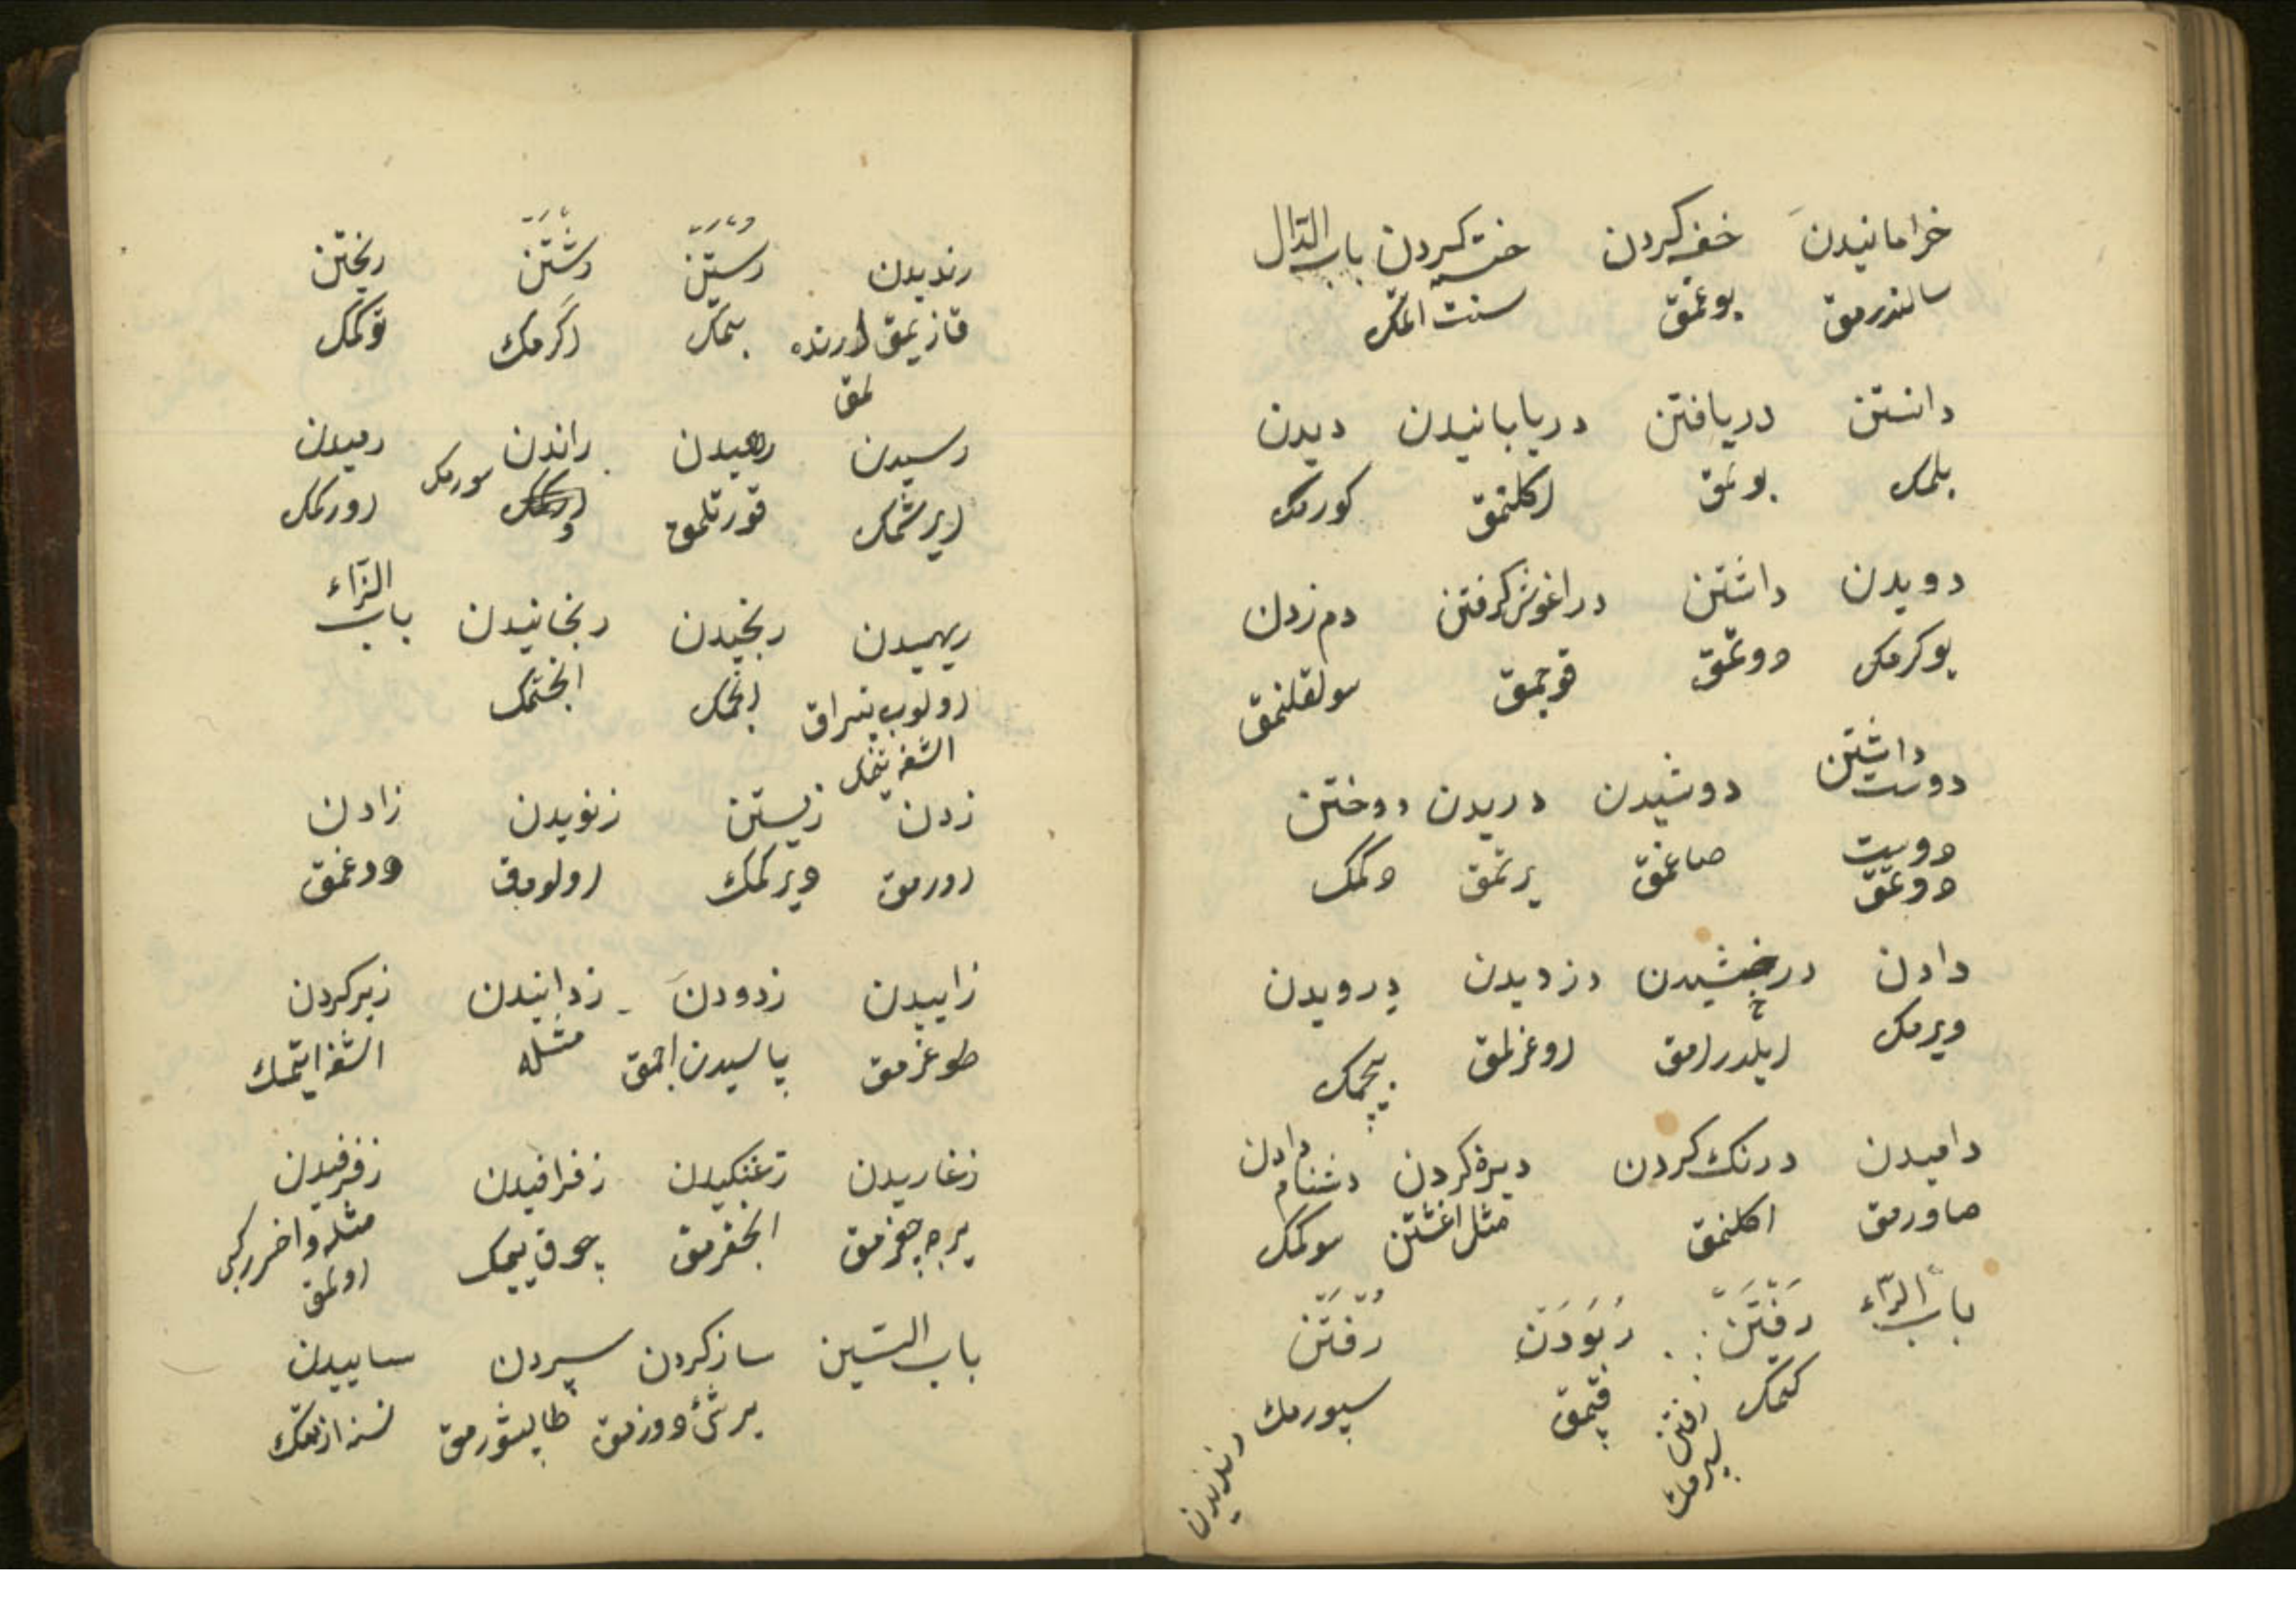 خرامانیدن خفه کردن ختنه کردن باب الدال
سالندرمق بوغمق سنت اتمک
دانستن دریافتن دریابانیدن دیدن
بلمک بولمق اکلنمق کورمک
دویدن داشتن دراغوش کرفتن دم زدن
یوکرمک دوتمق قوجمق سولقلنمق
دوست داشتن دوشیدن دریدن دوختن
دوست دوتمق صاغمق یرتمق دکمک
دادن درخشیدن دزدیدن درویدن
ویرمک ایلدرامق اوغرلمق بیچمک
دامیدن درنک کردن دیره کردن دشنام دادن
صاورمق اکلنمق مثل اغشتن سوکمک
باب الرّاء رَفْتَن رُبُودَن رُفْتَن
کتمک قپمق سپورمک
رفتن
سپرمک
رندیدن
رندیدن رستن رشتن ریختن
قازیمق اورنده بتمک اکرمک دوکمک
لمق
رسیدن رهیدن راندن رمیدن
ایرشمک قورتلمق سورمک اورکمک
ریهیدن رنجیدن رنجانیدن باب الزّاء
انجمک انجتمک
زدن زیستن زنویدن زادن
اورمق دیرکمک اولومق دوغمق
زاییدن زدودن زدانیدن زیر کردن
طوغرمق پاسیدن اچمق مثله اشغه ایتمک
زغاریدن زغنکیدن زفرافیدن زفرفیدن
یرجه چغرمق انجقرمق چوق ییمک مثله واخر
اولمق
باب السّین ساز کردن سپردن ساییدن
بر شیء دوزمق طاپشورمق نسنه ازمک